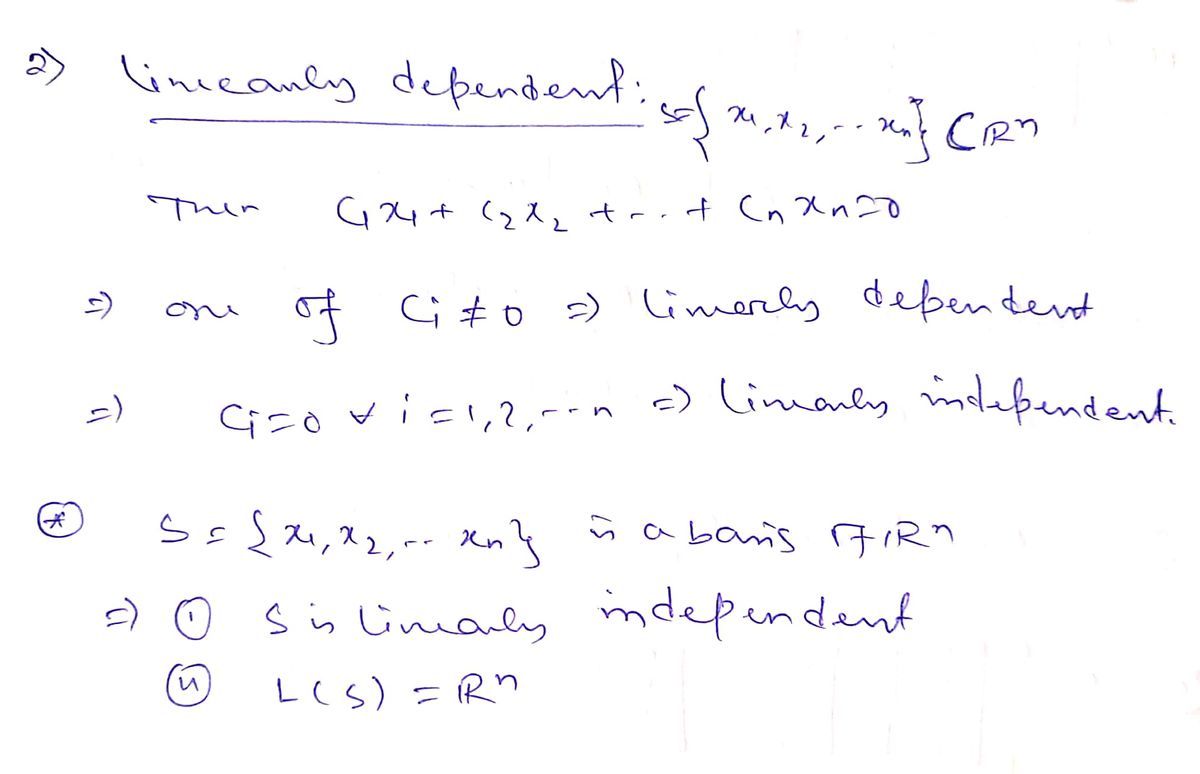 2) linearly dependent: S={x₁, x₂, -- xₙ} ⊂ ℝⁿ
Then C₁x₁ + C₂x₂ + -.. + Cₙxₙ=0
⇒ one of Cᵢ ≠ 0 ⇒ linearly dependent
⇒ Cᵢ=0 ∀ i=1,2,--n ⇒ linearly independent.
⊛ S = {x₁, x₂, -- xₙ} is a basis of ℝⁿ
⇒ (i) S is linearly independent
(ii) L(S) = ℝⁿ